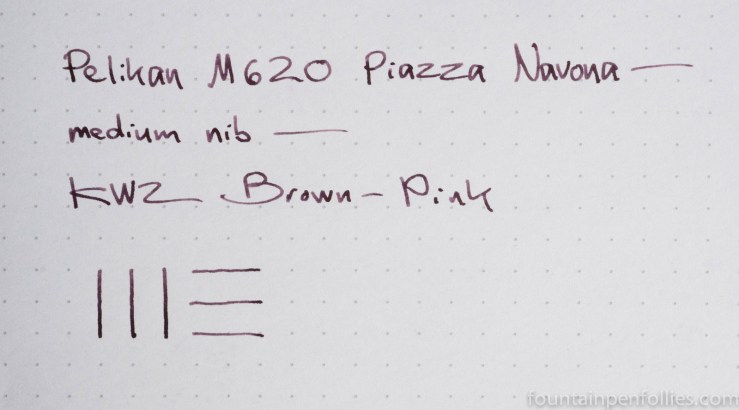 Pelikan M620 Piazza Navona —
medium nib —
KWZ Brown-Pink
fountainpenfollies.com